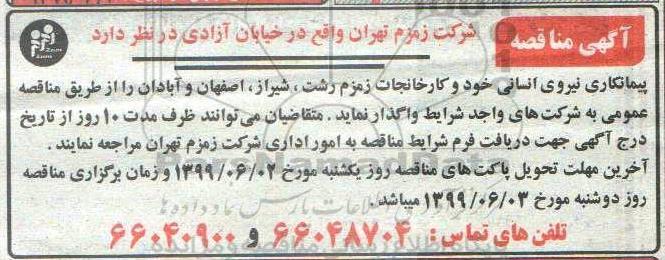 آگهی مناقصه
شرکت زمزم تهران واقع در خیابان آزادی در نظر دارد
پیمانکاری نیروی انسانی خود و کارخانجات زمزم رشت ، شیراز، اصفهان و آبادان را از طریق مناقصه
عمومی به شرکت های واجد شرایط واگذار نماید . متقاضیان می توانند ظرف مدت ۱۰ روز از تاریخ
درج آگهی جهت دریافت فرم شرایط مناقصه به امور اداری شرکت زمزم تهران مراجعه نمایند .
آخرین مهلت تحویل پاکت های مناقصه روز یکشنبه مورخ ۱۳۹۹/۰۶/۰۲ و زمان برگزاری مناقصه
روز دوشنبه مورخ ۱۳۹۹/۰۶/۰۳ میباشد .
تلفن های تماس : ۶۶۰۴۸۷۰۴ و ۶۶۰۴۰۹۰۰
ParsNamadData